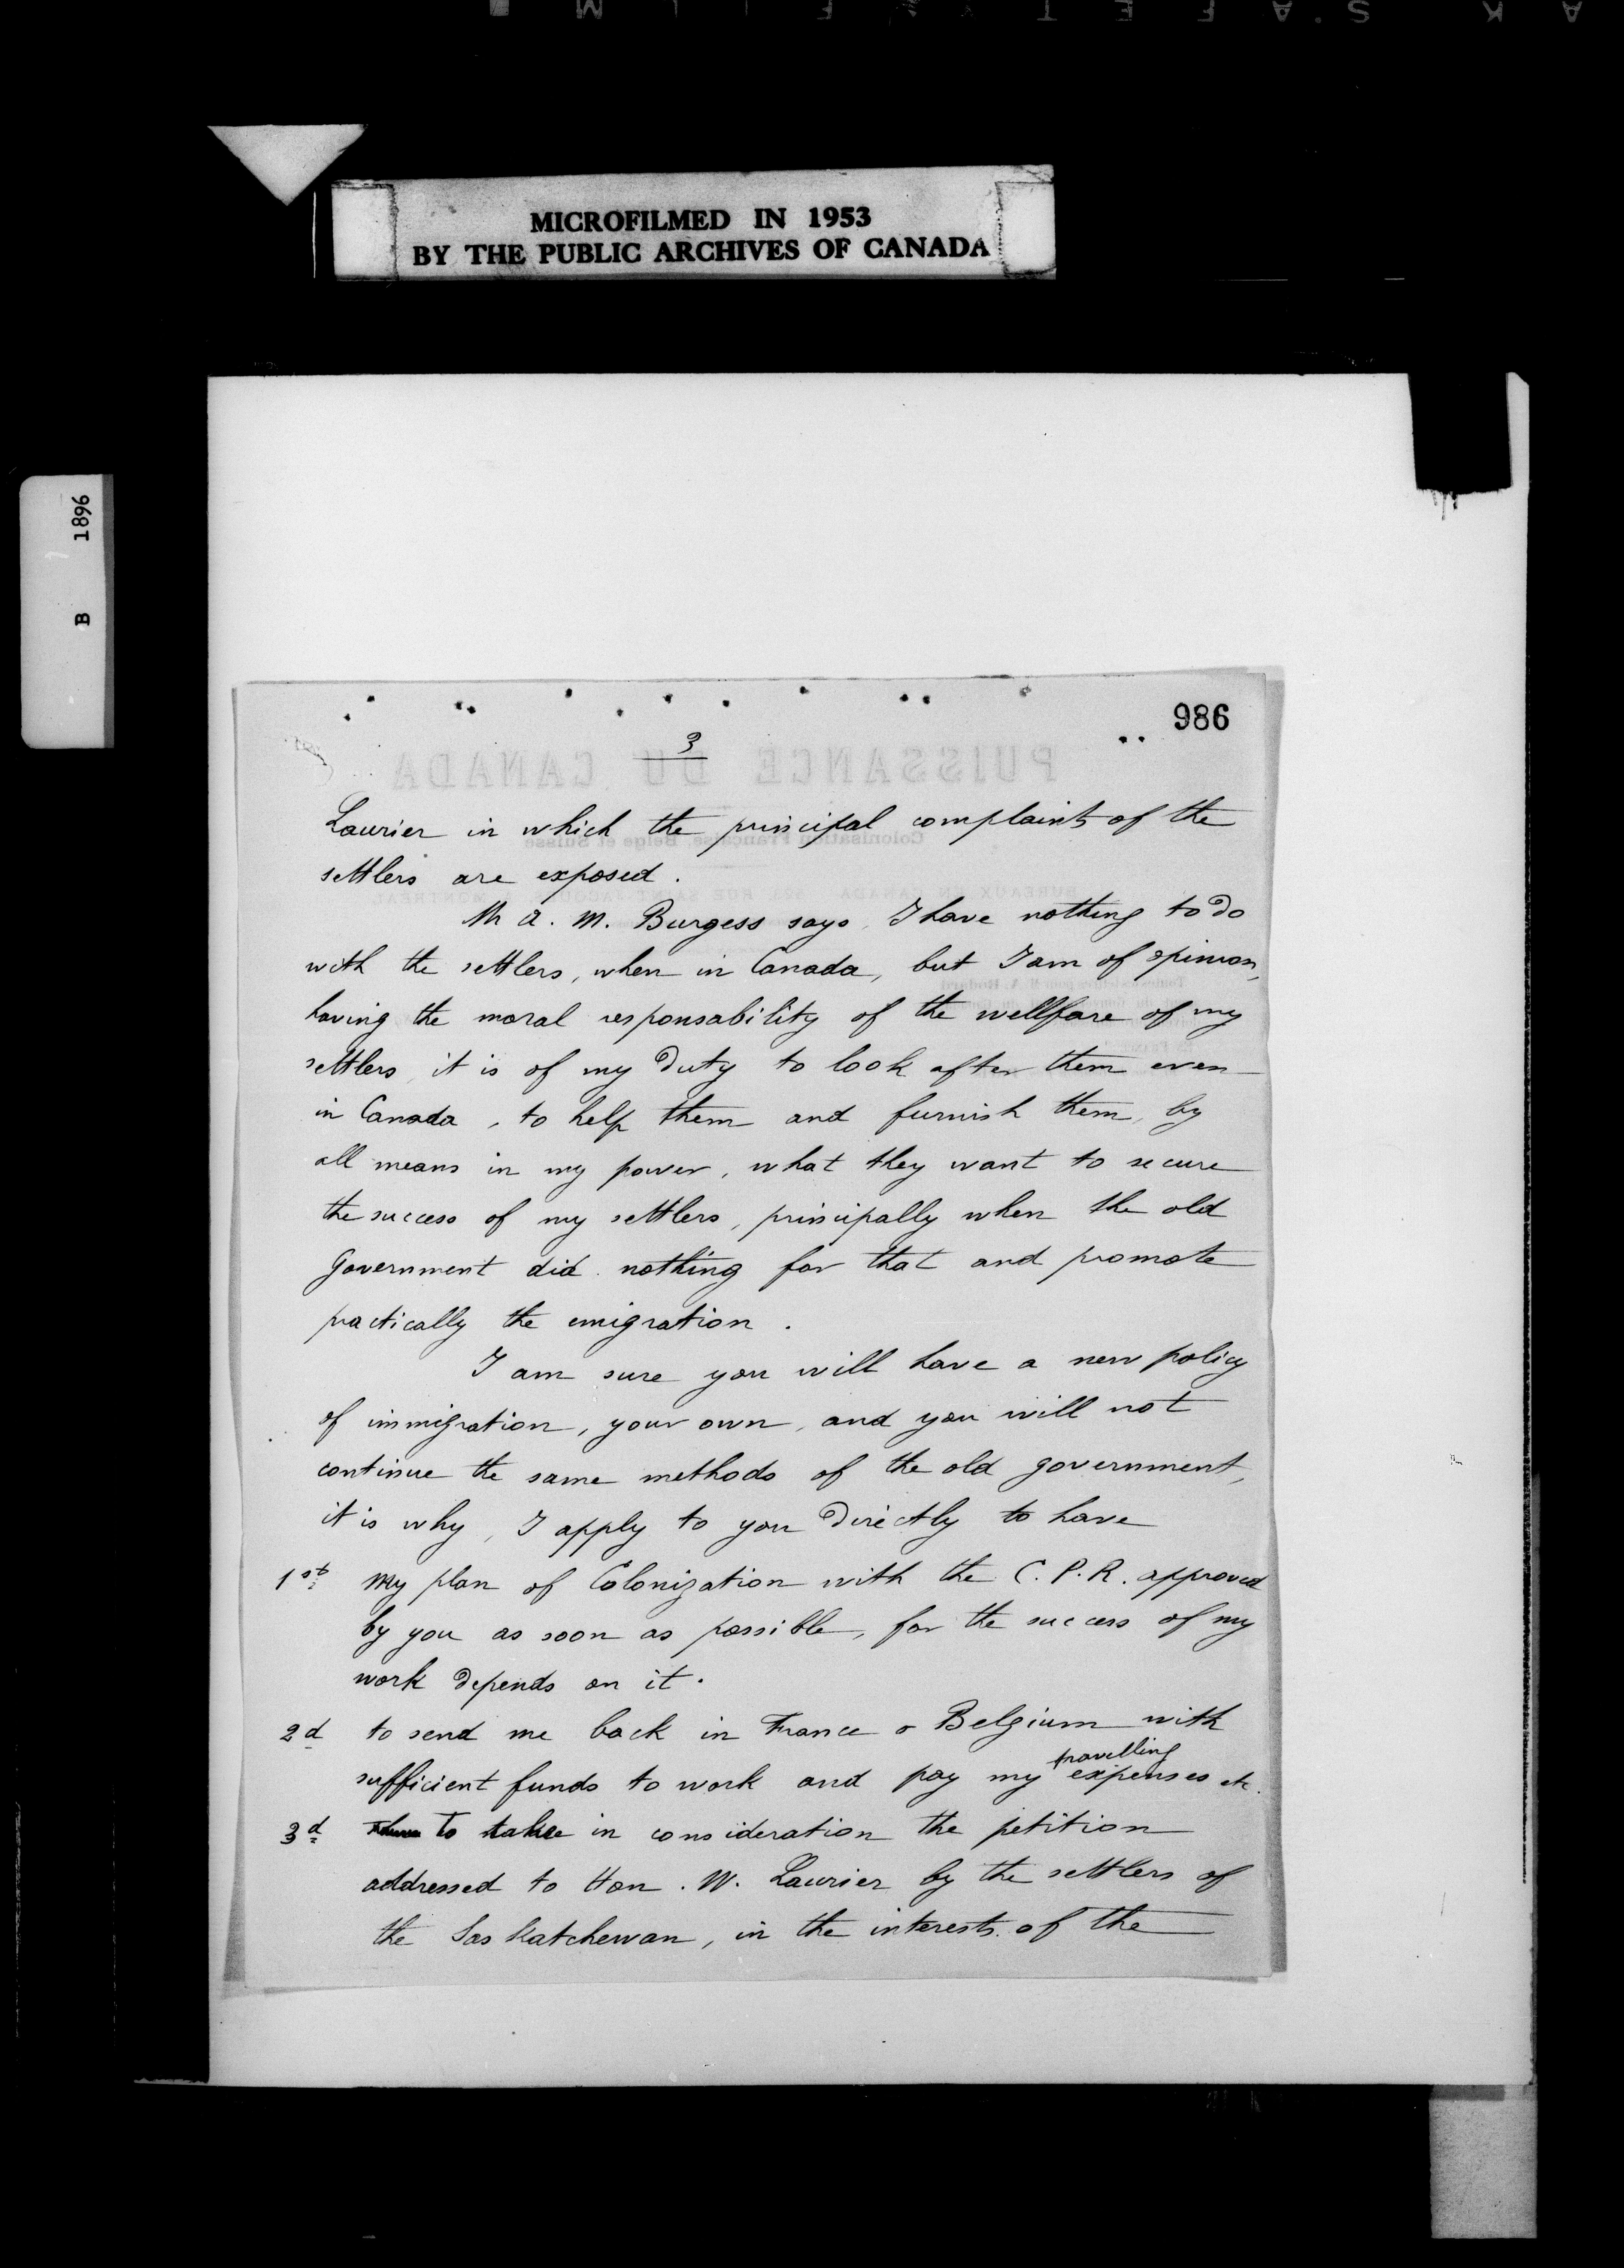 MICROFILMED IN 1953
BY THE PUBLIC ARCHIVES OF CANADA
B 1896
986
3
PUISSANCE DU CANADA
Colonisation Française, Belge et Suisse
Laurier in which the principal complaints of the
settlers are exposed.
Mr A. M. Burgess says, I have nothing to do
with the settlers, when in Canada, but I am of opinion,
having the moral responsability of the wellfare of my
settlers, it is of my duty to look after them even
in Canada, to help them and furnish them, by
all means in my power, what they want to secure
the success of my settlers, principally when the old
government did nothing for that and promote
practically the emigration.
I am sure you will have a new policy
of immigration, your own, and you will not
continue the same methods of the old government,
it is why, I apply to you directly to have
1st my plan of Colonization with the C. P. R. approved
by you as soon as possible, for the success of my
work depends on it.
2d to send me back in France & Belgium with
travelling
sufficient funds to work and pay my expenses etc.
3d To take in consideration the petition
addressed to Hon. W. Laurier by the settlers of
the Saskatchewan, in the interests of the